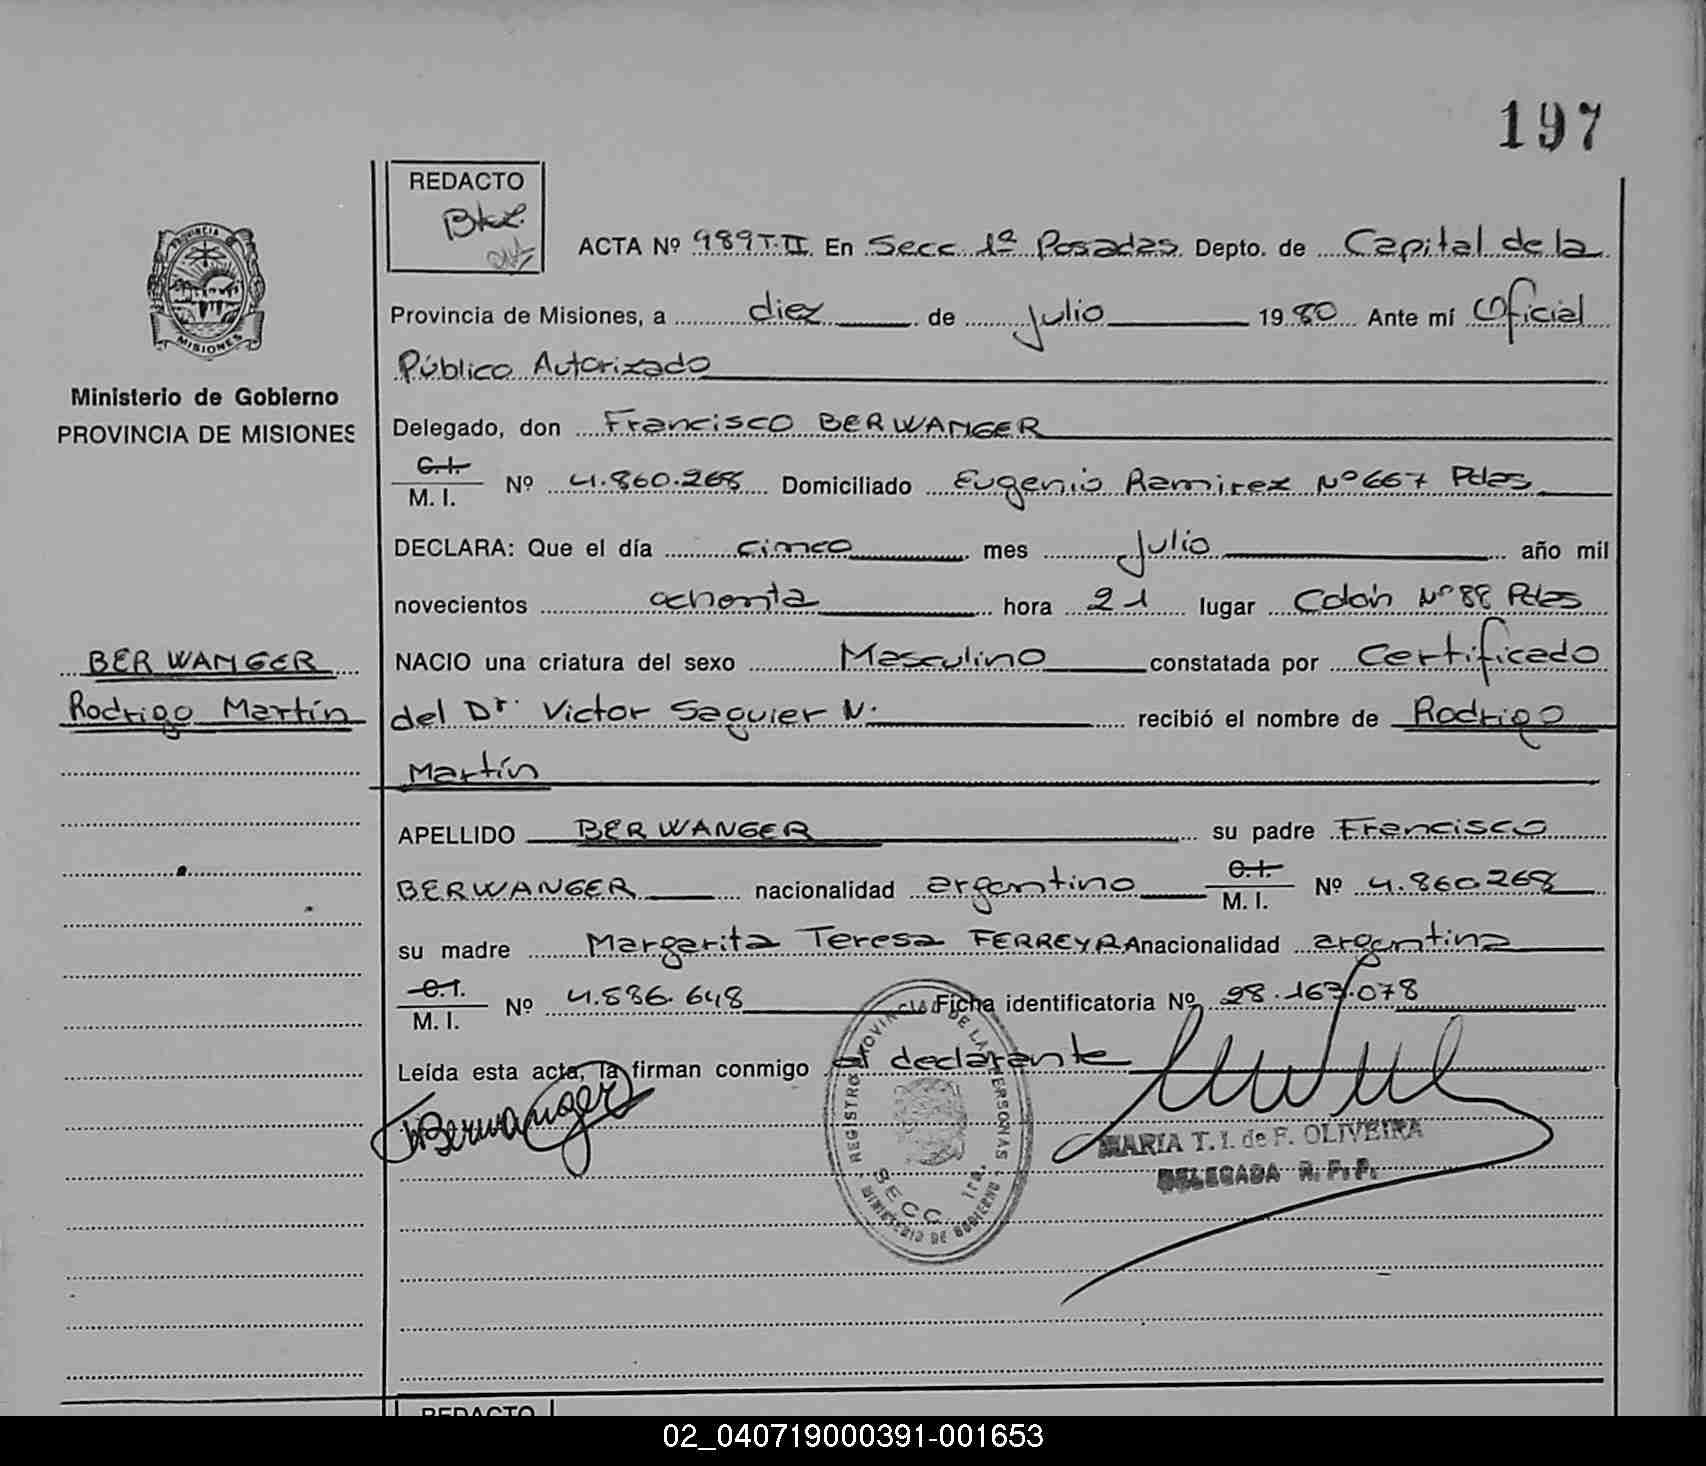 197
REDACTO
ACTA Nº 989 T. II En Secc. 1ª Posadas Depto. de Capital de la
Provincia de Misiones, a diez de julio 1980 Ante mí Oficial
Público Autorizado
PROVINCIA
MISIONES
Ministerio de Gobierno
PROVINCIA DE MISIONES
Delegado, don Francisco BERWANGER
C.I.
M. I. Nº 4.860.268 Domiciliado Eugenio Ramirez Nº 667 Pdas
DECLARA: Que el día cinco mes julio año mil
novecientos ochenta hora 21 lugar Colón Nº 88 Pdas
NACIO una criatura del sexo Masculino constatada por Certificado
BERWANGER
Rodrigo Martín
del Dr. Victor Saguier N. recibió el nombre de Rodrigo
Martín
APELLIDO BERWANGER su padre Francisco
BERWANGER nacionalidad argentino C.I.
M. I. Nº 4.860.268
su madre Margarita Teresa FERREYRA nacionalidad argentina
C.I.
M. I. Nº 4.886.648 Ficha identificatoria Nº 28.163.078
Leída esta acta, la firman conmigo el declarante
Berwanger
REGISTRO PROVINCIAL DE LAS PERSONAS
SECC. 1ra.
MINISTERIO DE GOBIERNO
MARIA T. I. de F. OLIVEIRA
DELEGADA R. P. P.
REDACTO
02_040719000391-001653